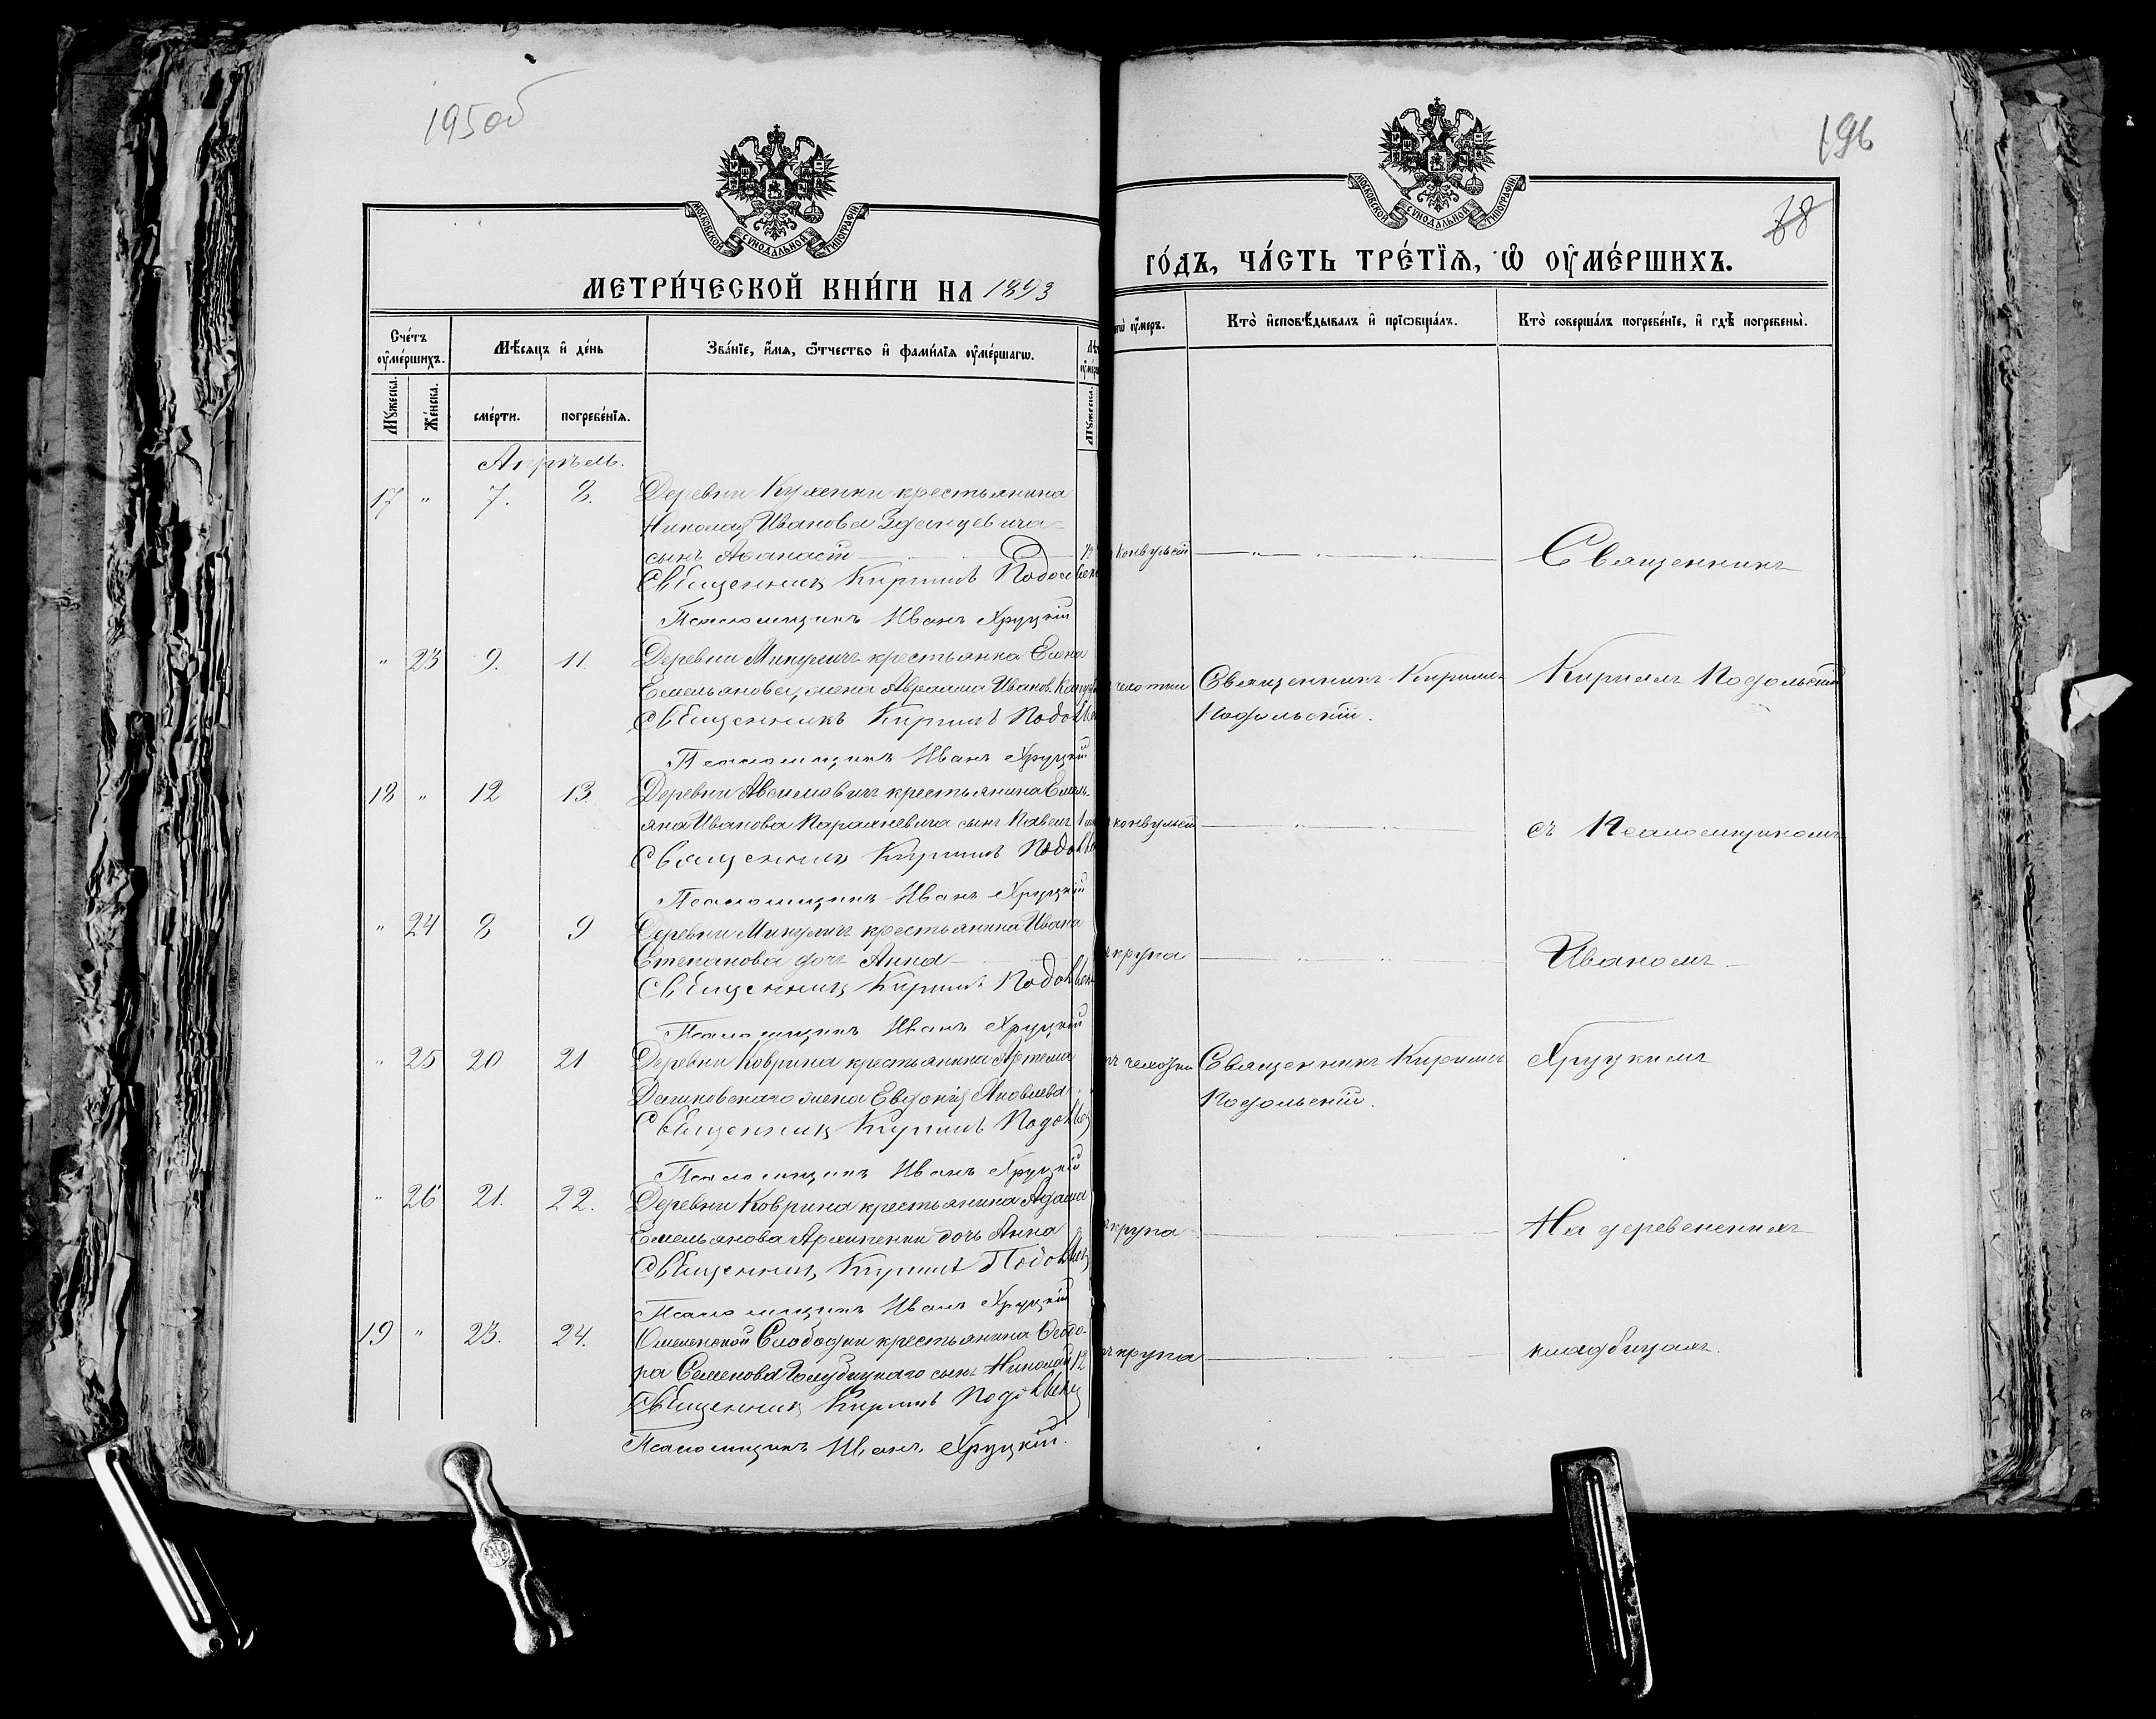 195об
МОСКОВСКОЙ СѴНОДАЛЬНОЙ ТИПОГРАФІИ.
МЕТРИ́ЧЕСКОЙ КНИ́ГИ НА 1893
Сче́тъ оу҆ме́ршихъ.
Мѣ́сяцъ и҆ де́нь
Зва́нїе, и҆́мя, ѻ҆́тчество и҆ фами́лїя оу҆ме́ршагѡ.
Мꙋжеска.
Же́нска.
сме́рти.
погребе́нїя.
Мꙋжеска.
Апрѣль.
17 " 7. 8. Деревни Кухенки крестьянина
Николая Иванова Зданцевича
сынъ Аѳанасій
Священникъ Кириллъ Подольск
Псаломщикъ Иванъ Хруцкій
" 23 9. 11 Деревни Микуличъ крестьянка Елена
Емельянова, жена Авраама Иванов.
Священникъ Кириллъ Подольск
Псаломщикъ Иванъ Хруцкій
18 " 12 13. Деревни Авсимовичъ крестьянина Емель-
яна Иванова сынъ Павелъ 1
Священникъ Кириллъ Подольск
Псаломщикъ Иванъ Хруцкій
" 24 8 9 Деревни Микуличъ крестьянина Ивана
Степанова дочь Анна
Священникъ Кириллъ Подольск
Псаломщикъ Иванъ Хруцкій
" 25 20 21 Деревни Коврина крестьянина Артема
жена Евдокія Яковлева
Священникъ Кириллъ Подольск
Псаломщикъ Иванъ Хруцкій
" 26 21. 22. Деревни Коврина крестьянина Адама
Емельянова Архипенки дочь Анна
Священникъ Кириллъ Подольск
Псаломщикъ Иванъ Хруцкій
19 " 23. 24. Слободки крестьянина Ѳеодо-
ра Семенова Голубицкаго сынъ Николай 12
Священникъ Кириллъ Подольск
Псаломщикъ Иванъ Хруцкій.
196
68
МОСКОВСКОЙ СѴНОДАЛЬНОЙ ТИПОГРАФІИ.
ГО́ДЪ, ЧА́СТЬ ТРЕ́ТЇЯ, Ѡ҆ ОУ҆МЕ́РШИХЪ.
оу҆́меръ.
Кто̀ и҆сповѣ́дывалъ и҆ прїѡбща́лъ.
Кто̀ соверша́лъ погребе́нїе, и҆ гдѣ̀ погребены̀.
конвульсій
Священникъ
чахотки Священникъ Кириллъ
Подольскій.
Кириллъ Подольскій
конвульсій
съ Псаломщикомъ
крупа
Иваномъ
чахотки Священникъ Кириллъ
Подольскій.
Хруцкимъ
крупа
На деревенскихъ
крупа
кладбищахъ.